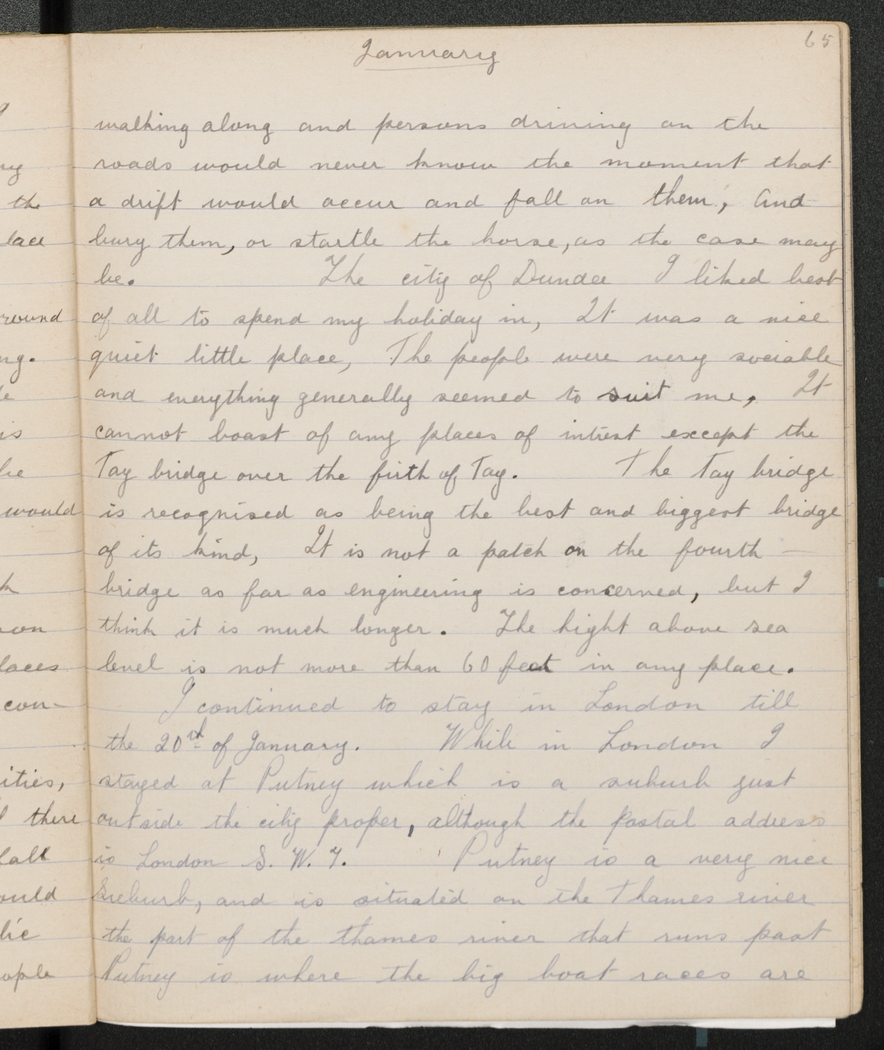 January
65
walking along and persons driving on the
roads would never know the moment that
a drift would occur and fall on them, and
bury them, or startle the horse, as the case may
be. The city of Dundee I liked best
of all to spend my holiday in, It was a nice
quiet little place, The people were very sociable
and everything generally seemed to suit me, It
cannot boast of any places of intrest except the
Tay bridge over the firth of Tay. The Tay bridge
is recognised as being the best and biggest bridge
of its kind, It is not a patch on the fourth —
bridge as far as engineering is concerned, but I
think it is much longer. The hight above sea
level is not more than 60 feet in any place.
I continued to stay in London till
the 20rd of January. While in London I
stayed at Putney which is a suburb just
outside the city proper, although the postal address
is London S. W. Putney is a very nice
Suburb, and is situated on the Thames river
the part of the thames river that runs past
Putney is where the big boat races are
the
lace
round
ng.
is
he
would
laces
con-
ities,
there
fall
ould
lic
ople